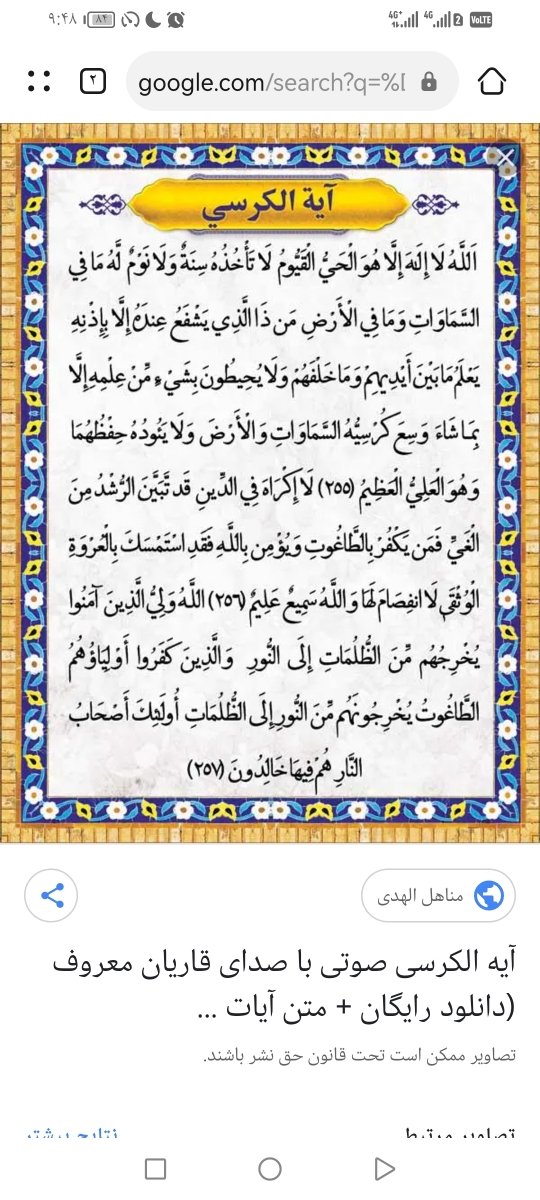 ۹:۴۸
۸۴
4G+
4G
2
VoLTE
۲
google.com/search?q=%[
آية الكرسي
اَللَّهُ لَا إِلَهَ إِلَّا هُوَ الْحَيُّ الْقَيُّومُ لَا تَأْخُذُهُ سِنَةٌ وَلَا نَوْمٌ لَّهُ مَا فِي
السَّمَاوَاتِ وَمَا فِي الْأَرْضِ مَن ذَا الَّذِي يَشْفَعُ عِندَهُ إِلَّا بِإِذْنِهِ
يَعْلَمُ مَا بَيْنَ أَيْدِيهِمْ وَمَا خَلْفَهُمْ وَلَا يُحِيطُونَ بِشَيْءٍ مِّنْ عِلْمِهِ إِلَّا
بِمَا شَاءَ وَسِعَ كُرْسِيُّهُ السَّمَاوَاتِ وَالْأَرْضَ وَلَا يَئُودُهُ حِفْظُهُمَا
وَهُوَ الْعَلِيُّ الْعَظِيمُ (٢٥٥) لَا إِكْرَاهَ فِي الدِّينِ قَد تَّبَيَّنَ الرُّشْدُ مِنَ
الْغَيِّ فَمَن يَكْفُرْ بِالطَّاغُوتِ وَيُؤْمِن بِاللَّهِ فَقَدِ اسْتَمْسَكَ بِالْعُرْوَةِ
الْوُثْقَى لَا انفِصَامَ لَهَا وَاللَّهُ سَمِيعٌ عَلِيمٌ (٢٥٦) اللَّهُ وَلِيُّ الَّذِينَ آمَنُوا
يُخْرِجُهُم مِّنَ الظُّلُمَاتِ إِلَى النُّورِ وَالَّذِينَ كَفَرُوا أَوْلِيَاؤُهُمُ
الطَّاغُوتُ يُخْرِجُونَهُم مِّنَ النُّورِ إِلَى الظُّلُمَاتِ أُولَئِكَ أَصْحَابُ
النَّارِ هُمْ فِيهَا خَالِدُونَ (٢٥٧)
مناهل الهدى
آیه الکرسی صوتی با صدای قاریان معروف
(دانلود رایگان + متن آیات ...
تصاویر ممکن است تحت قانون حق نشر باشند.
تصاویر مرتبط
نتایج بیشتر